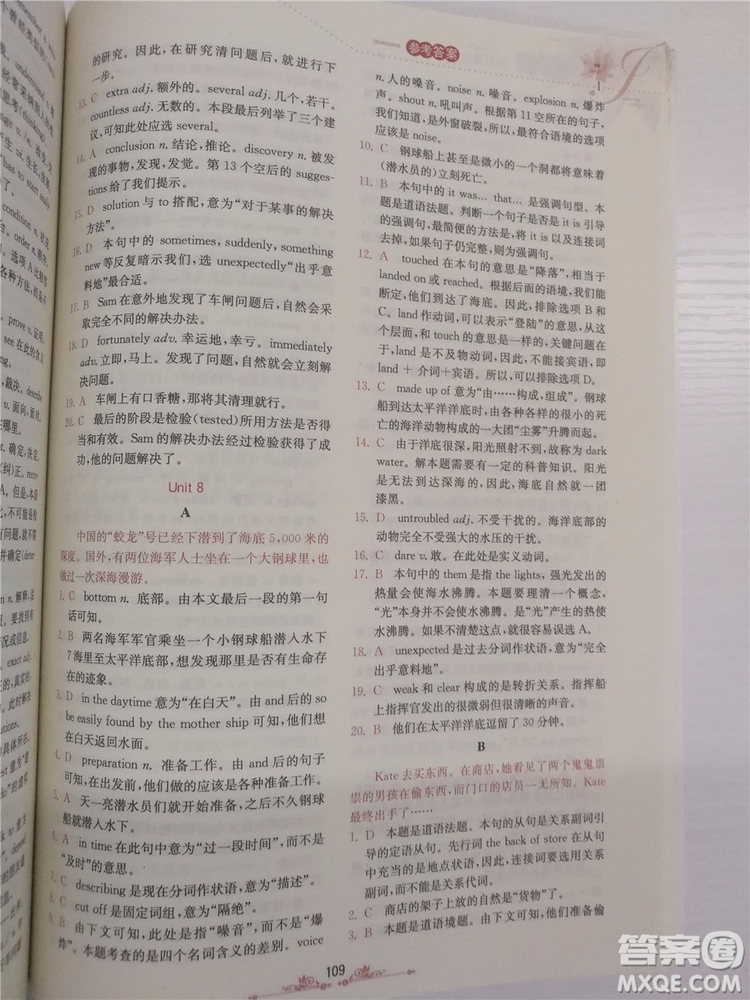 参考答案
的研究。因此，在研究清问题后，就应该进行下一
步。
13. C extra adj. 额外的。several adj. 几个，若干。
countless adj. 无数的。本段最后列举了三个建
议，可知此处应选 several。
14. A conclusion n. 结论，推论。discovery n. 被发
现的事物，发现，发觉。第 13 个空后的 sugges-
tions 给了我们提示。
15. D solution 与 to 搭配，意为“对于某事的解决
方法”。
16. D 本句中的 sometimes, suddenly, something
new 等反复暗示我们，选 unexpectedly“出乎意
料地”最合适。
17. B Sam 在意外地发现了车闸问题后，自然会采
取完全不同的解决办法。
18. D fortunately adv. 幸运地，幸亏。immediately
adv. 立即，马上。发现了问题，自然就会立刻解
决问题。
19. A 车闸上有口香糖，那将其清理就行。
20. C 最后的阶段是检验(tested)所用方法是否得
当和有效。Sam 的解决方法最后获得了成
功，他的问题解决了。
Unit 8
A
中国的“蛟龙”号已经下潜到了海底 5,000 米的
深度。国外，有两位海军人士坐在一个大钢球里，也
做过一次深海漫游。
1. C bottom n. 底部。由本文最后一段的第一句
话可知。
2. B 两名海军军官乘坐一个小钢球船潜入水下
7 海里来到太平洋底部，想发现那里是否有生命存
在的迹象。
3. D in the daytime 意为“在白天”。由 and 后的 so
be easily found by the mother ship 可知，他们想
在白天返回水面。
4. D preparation n. 准备工作。由 and 后的句子
可知，在出发前，他们做的应该是各种准备工作。
5. A 天一亮潜水员们就开始准备工作，不久钢球
船就潜入水下。
6. A in time 在此句中意为“过一段时间”，而不是
“及时”的意思。
7. C describing 是现在分词作状语，意为“描述”。
8. C cut off 是固定词组，意为“隔绝”。
9. B 由下文可知，此处是指“噪音”，而不是“爆
炸”。本题考查的是四个名词含义的差别。voice
n. 人的嗓音。noise n. 噪音。explosion n. 爆炸
声。shout n. 吼叫声。根据第 11 空所在的句子，
我们知道，是外窗破裂。所以，最符合语境的选项
应该是 noise。
10. C 钢球船上甚至是微小的一个洞都将意味着
(潜水员的)立刻死亡。
11. B 本句中的 it was… that… 是强调句型。本
题是语法题。判断一个句子是否是 it is 引导
的强调句，最简便的方法是，将 it is 以及连接词
去掉，如果句子仍完整，则为强调句。
12. A touched 在本句的意思是“降落”，相当于
landed on 或 reached。因为，根据下文可以判
断，他们到达了海底。因此，排除选项 B 和
C。land 作动词，可以表示“登陆”的意思，从这
个层面，和 touch 的意思是一样的。但是，因为
land 是不及物动词，因此，不能接宾语，即
land + 介词＋宾语。所以排除选项 D。
13. C made up of 意为“由……构成，组成”。钢球
船到达太平洋洋底，由各种各样的很小的死亡
的海洋动物构成的一大团“尘雾”升腾而起。
14. C 由于洋底很深，阳光照射不到，故成为 dark
water。解本题需要一定的科普知识。阳光
是无法达到深海的，所以，海底自然就一团
漆黑。
15. D untroubled adj. 不受干扰的。海洋底部的
动物完全不受强大的水压的干扰。
16. C dare v. 敢。在此处是实义动词。
17. B 本句中的 them 是指 the lights，强光发出的
热量会使海水沸腾。本题要清理一个概念，
“光”本身并不会使水沸腾。是“光”产生的热使
水沸腾。所以，要防止很容易误选 A。
18. A unexpected 是过去分词作状语，意为“完全
出乎意料地”。
19. C weak 和 clear 构成的是转折关系。指挥船
上指挥官发出的很微弱但很清晰的声音。
20. B 他们在太平洋洋底逗留了 30 分钟。
B
Kate 去买东西。在商店，她看见了两个鬼鬼祟
祟的男孩在偷东西，而门口的店员一无所知。Kate
最终出手了……
1. D 本题是语法题。本句的从句是关系副词引
导的定语从句。先行词 the back of store 在从句
中充当的是地点状语，因此，连接词要选用关系
副词，而不能用关系代词。
2. C 商店的架子上放的自然是“货物”了。
3. B 本题是语境题。由下文可知，他们准备偷
109
答案圈
MXQE.COM